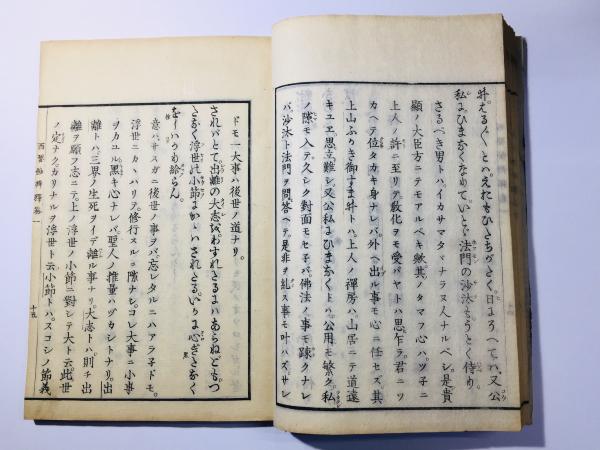 私にひまなくなりて。いとゞ法門の沙汰もうとく侍り。
さるべき男トハ。イカサマタヾナラヌ人ナルベシ。是貴
顕ノ大臣方ニテモアルベキ歟。其ノタマフ心ハ。ツ子ニ
上人ノ許ニ至リテ教化ヲモ受バヤトハ思乍ラ。君ニツ
カヘテ位タカキ身ナレバ。外ヘ出ル事モ心ニ任セズ。其
上山ふかき御すま井トハ。上人ノ禅房ハ。山居ニテ道遠
キユヱ思立難シ。又公私にひまなくトハ。公用モ繁ク。私
ノ隙モ入テ。久シク對面モセ子バ。佛法ノ事モ疎クナレ
バ。沙汰ト法門ヲ問答ヘテ。是非ヲ糺ス事モ叶ハズ。サレ
ドモ一大事ハ後世ノ道ナリ。
されバとて。出離の大志をわすれさるにハあらねども。つ
たなく浮世の小節にかゝハされたる。いかに心ぎたなく
をしハかり給らん。
意バ。サスガニ後世ノ事ヲバ。忘レタルニハアラ子ドモ。
浮世ニカヽハリテ。修行スルノ隙ナシ。コレ大事ニ小事
ヲカユル。黒キ心ナレバ。聖人ノ推量ハヅカシトナリ。出
離トハ。三界ノ生死ヲイデ離ル事ナリ。大志トハ。則チ出
離ヲ願フ志ニテ。上ノ浮世ノ小節ニ對シテ大ト云。此世
ノ定ナク。カリナルヲ浮世ト云。小節トハ。スコシノ節義
十五